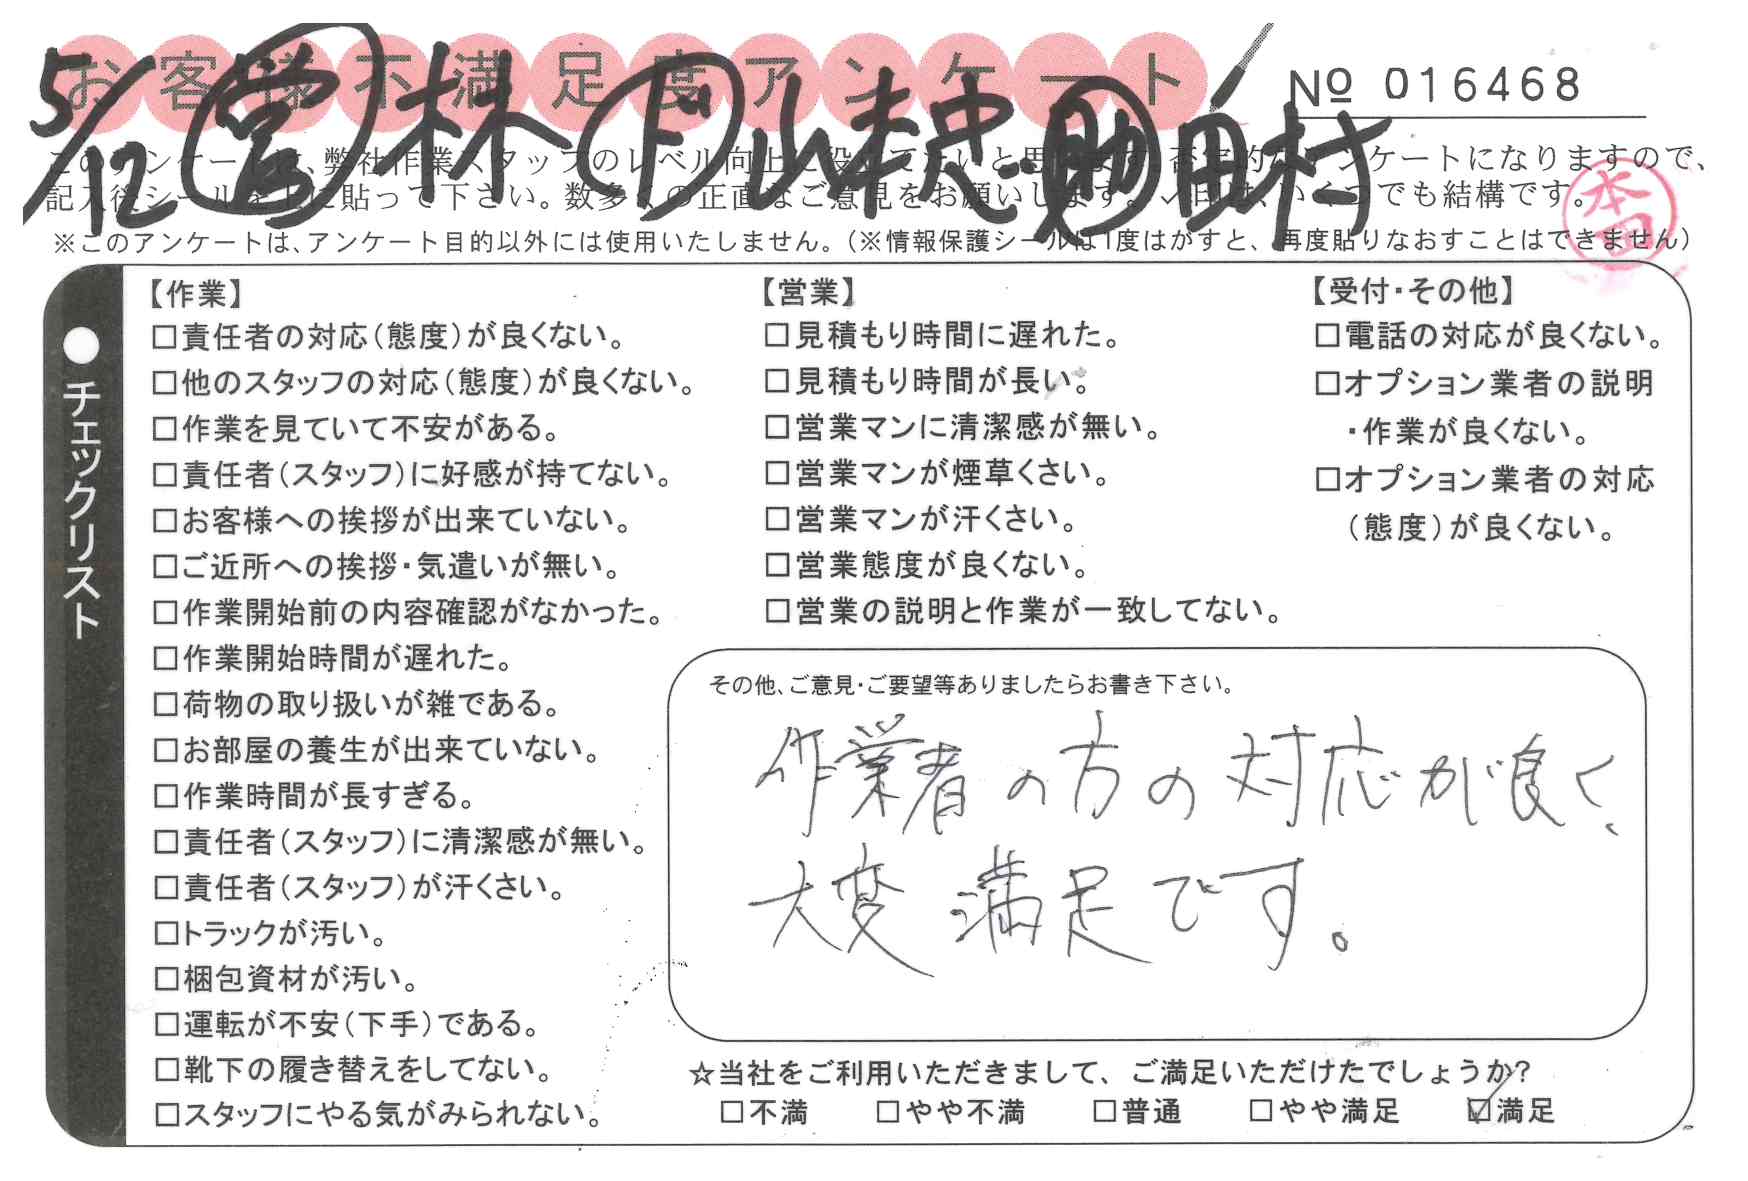 お客様不満足度アンケート
№ 016468
5/12 営 林 ド 山本忠 助 田村
このアンケートは、弊社作業スタッフのレベル向上に役立てたいと思います。否定的なアンケートになりますので、
記入後シールを上に貼って下さい。数多くの正直なご意見をお願いします。✓印は、いくつでも結構です。
※このアンケートは、アンケート目的以外には使用いたしません。（※情報保護シールは1度はがすと、再度貼りなおすことはできません）
本田
●チェックリスト
【作業】
□責任者の対応（態度）が良くない。
□他のスタッフの対応（態度）が良くない。
□作業を見ていて不安がある。
□責任者（スタッフ）に好感が持てない。
□お客様への挨拶が出来ていない。
□ご近所への挨拶・気遣いが無い。
□作業開始前の内容確認がなかった。
□作業開始時間が遅れた。
□荷物の取り扱いが雑である。
□お部屋の養生が出来ていない。
□作業時間が長すぎる。
□責任者（スタッフ）に清潔感が無い。
□責任者（スタッフ）が汗くさい。
□トラックが汚い。
□梱包資材が汚い。
□運転が不安（下手）である。
□靴下の履き替えをしてない。
□スタッフにやる気がみられない。
【営業】
□見積もり時間に遅れた。
□見積もり時間が長い。
□営業マンに清潔感が無い。
□営業マンが煙草くさい。
□営業マンが汗くさい。
□営業態度が良くない。
□営業の説明と作業が一致してない。
【受付・その他】
□電話の対応が良くない。
□オプション業者の説明
・作業が良くない。
□オプション業者の対応
（態度）が良くない。
その他、ご意見・ご要望等ありましたらお書き下さい。
作業者の方の対応が良く、
大変満足です。
☆当社をご利用いただきまして、ご満足いただけたでしょうか?
□不満 □やや不満 □普通 □やや満足 ☑満足